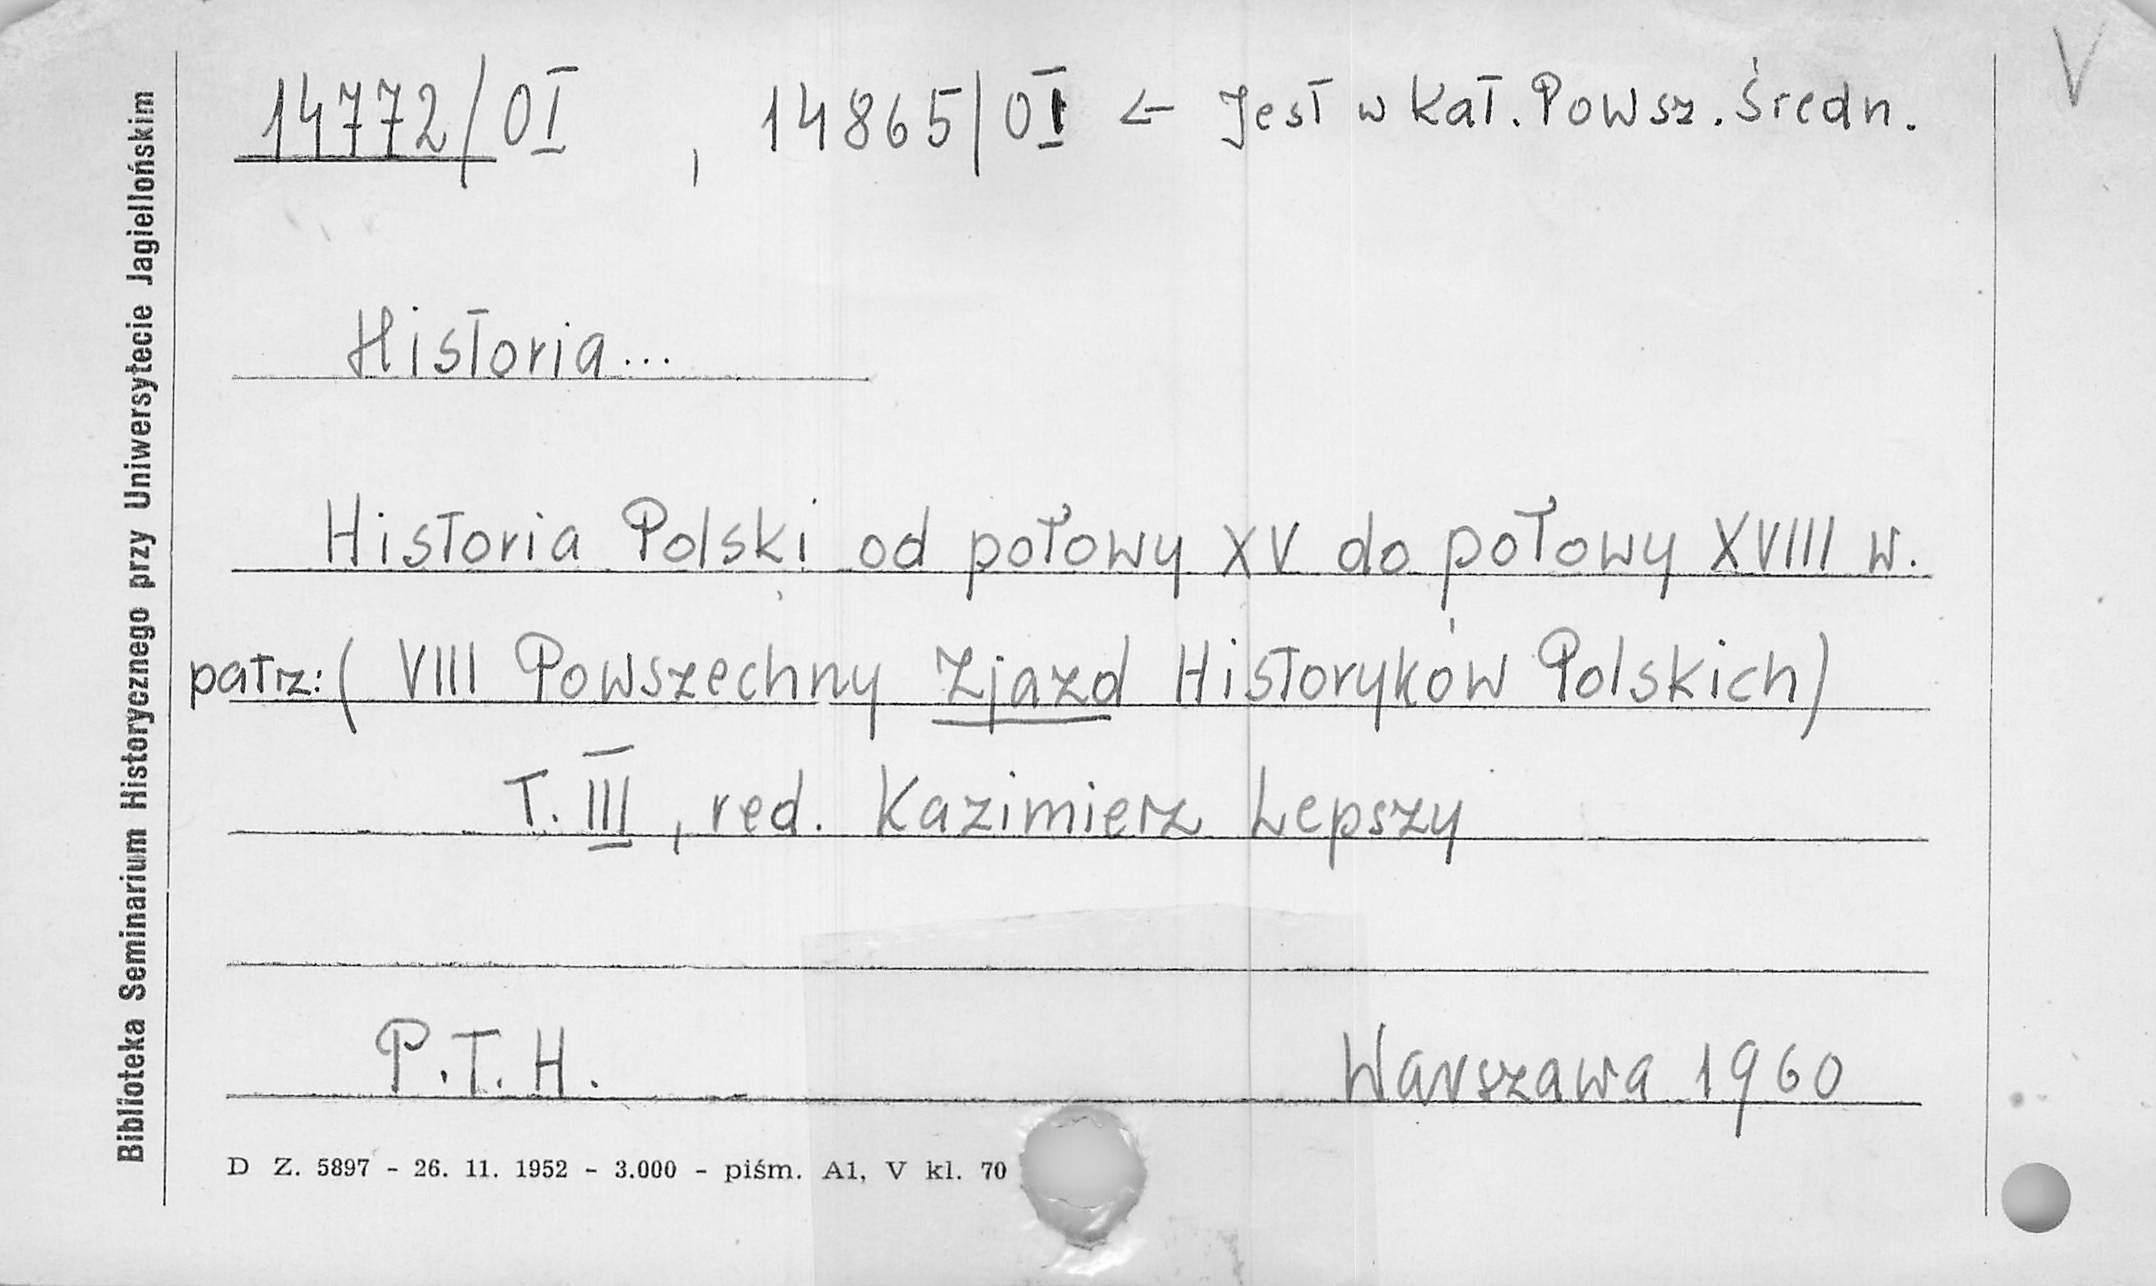 V
14772/OI , 14865/OI ← Jest w Kat. Powsz. Średn.
Historia...
Historia Polski od połowy XV do połowy XVIII w.
patrz: ( VIII Powszechny Zjazd Historyków Polskich)
T. III, red. Kazimierz Lepszy
P.T.H. Warszawa 1960
D Z. 5897 - 26. 11. 1952 - 3.000 - piśm. A1, V kl. 70
Biblioteka Seminarium Historycznego przy Uniwersytecie Jagiellońskim